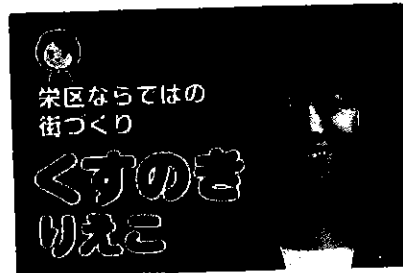 栄区ならではの
街づくり
くすのき
りえこ